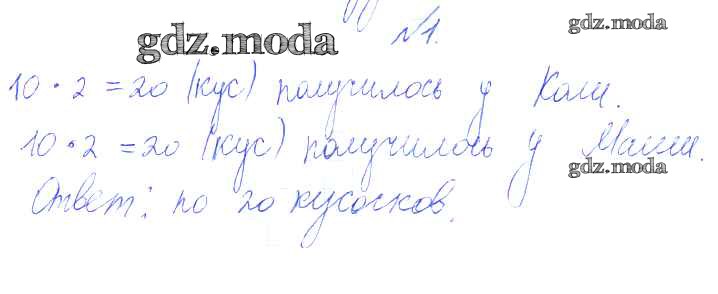 №1.
gdz.moda
gdz.moda
10 · 2 = 20 (кус) получилось у Коли.
10 · 2 = 20 (кус) получилось у Маши.
gdz.moda
Ответ: по 20 кусосков.